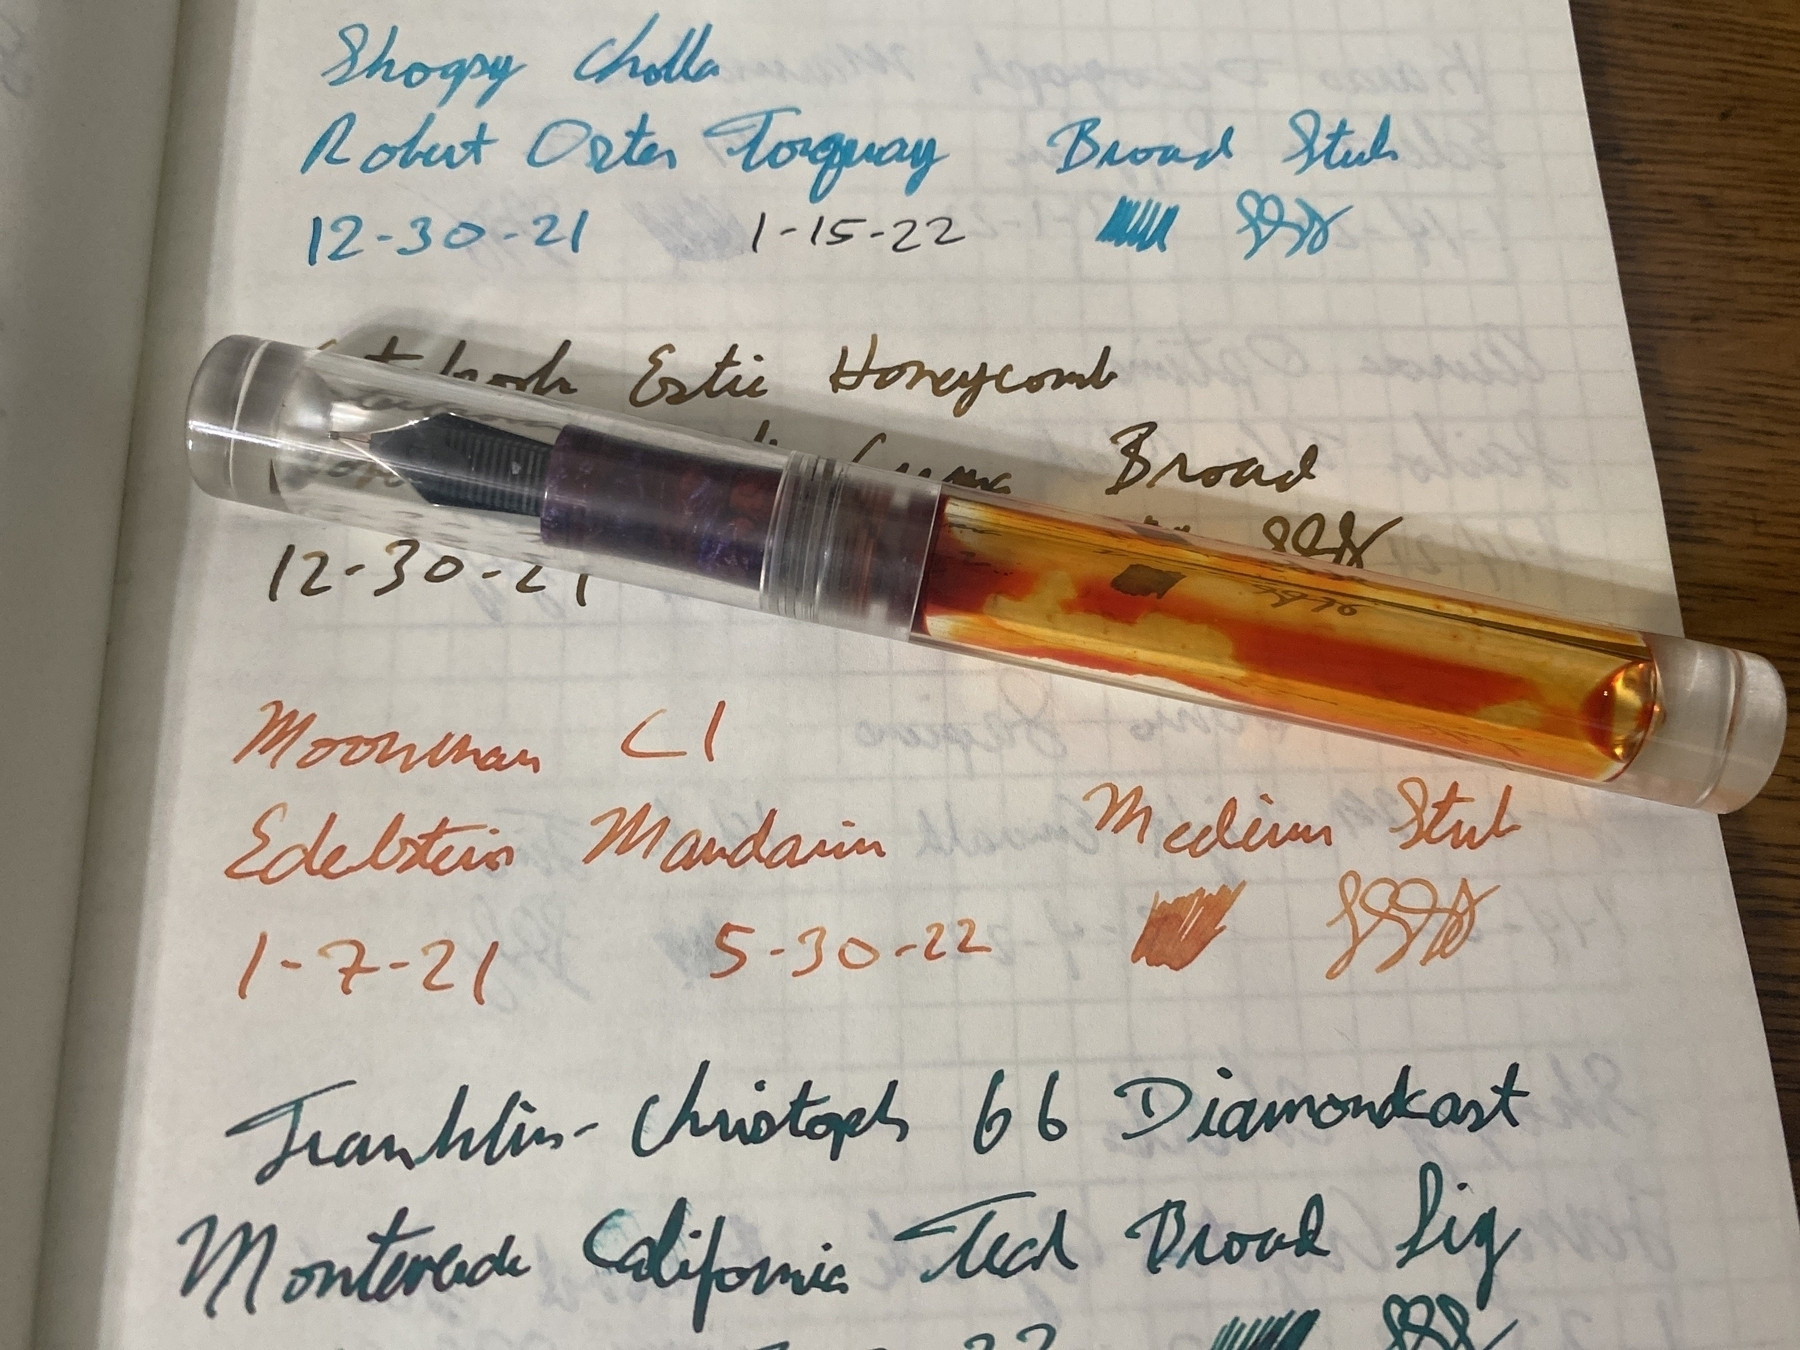 Shogpy Cholla
Robert Oster Torquay Broad Stub
12-30-21 1-15-22
Estie Honeycomb
Broad
12-30-21
Moonman C1
Edelstein Mandarin Medium Stub
1-7-21 5-30-22
Franklin-Christoph 66 Diamondcast
Monteverde California Teal Broad Sig